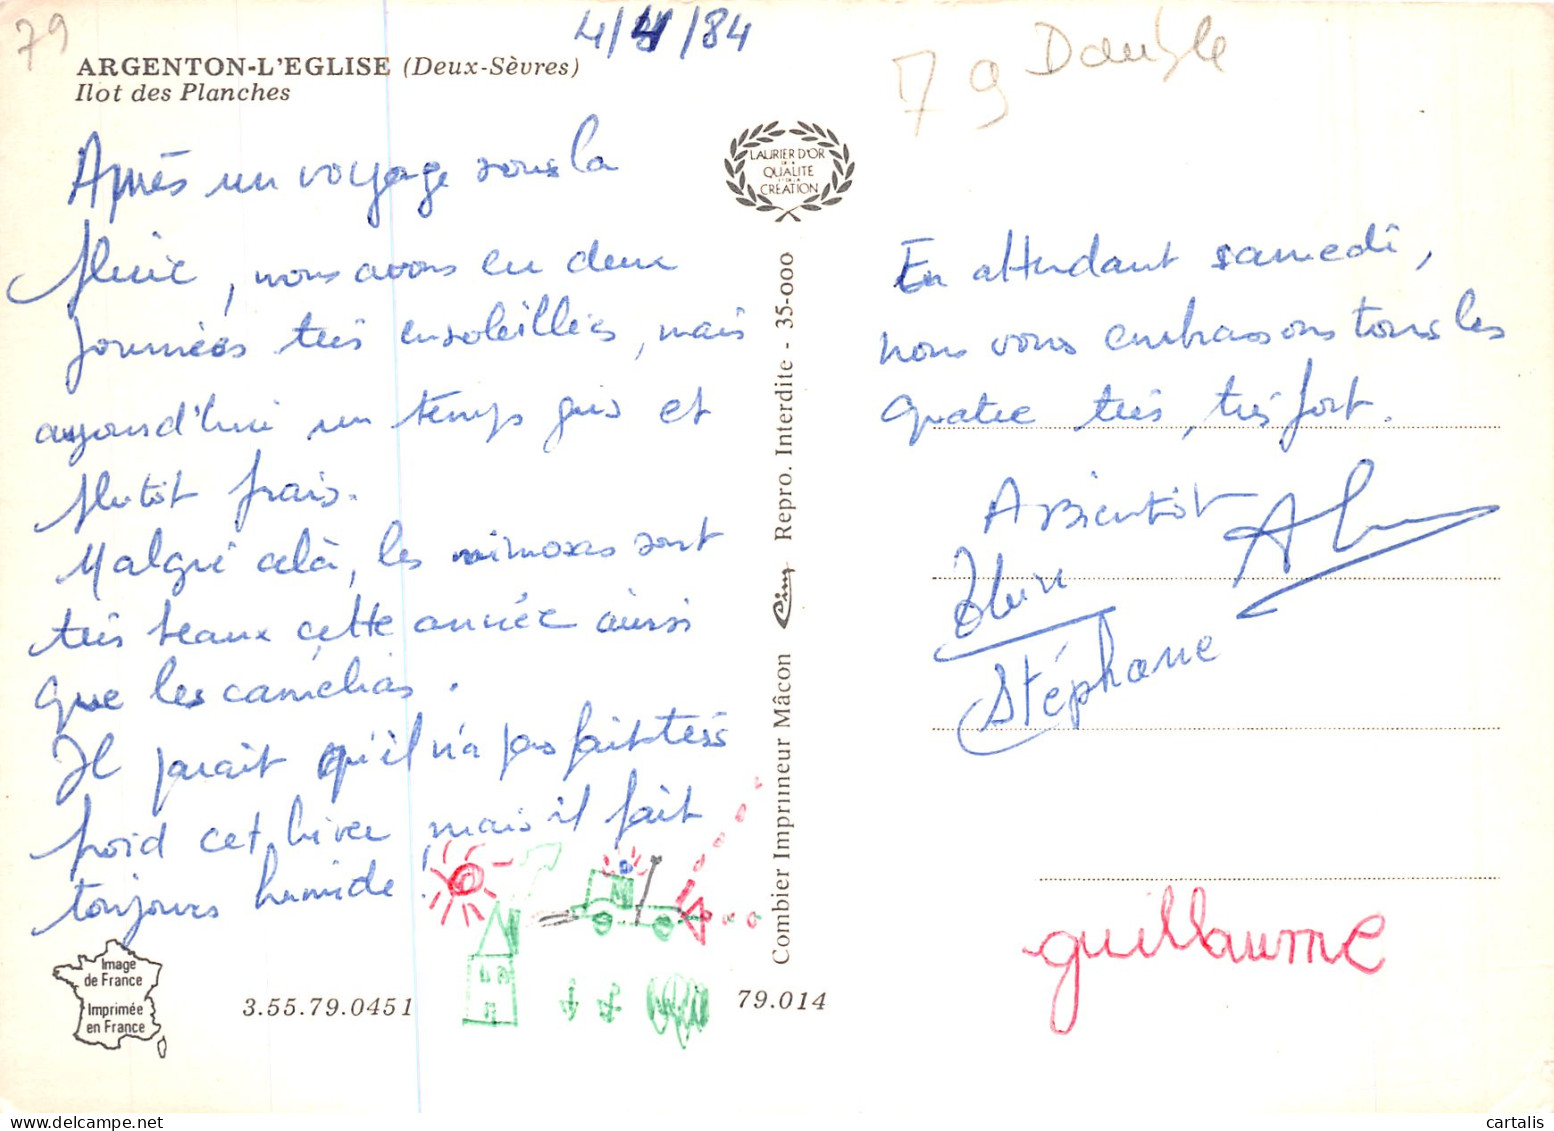 79
4/4/84
79 Double
ARGENTON-L'EGLISE (Deux-Sèvres)
Ilot des Planches
Après un voyage sous la
pluie, nous avons eu deux
journées très ensoleillées, mais
aujourd'hui un temps gris et
plutôt frais.
Malgré celà, les mimosas sont
très beaux cette année ainsi
que les camélias.
Il parait qu'il n'a pas fait très
froid cet hiver, mais il fait
toujours humide !
Image
de France
Imprimée
en France
3.55.79.0451
79.014
LAURIER D'OR
DE LA
QUALITE
ET DE LA
CRÉATION
Combier Imprimeur Mâcon Cim Repro. Interdite - 35-000
En attendant samedi,
nous vous embrassons tous les
quatre très, très fort.
A Bientôt
Stéphane
guillaume
cartalis